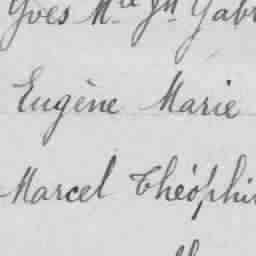 Yves Mie Jh Gabr
Eugène Marie
Marcel Théophi